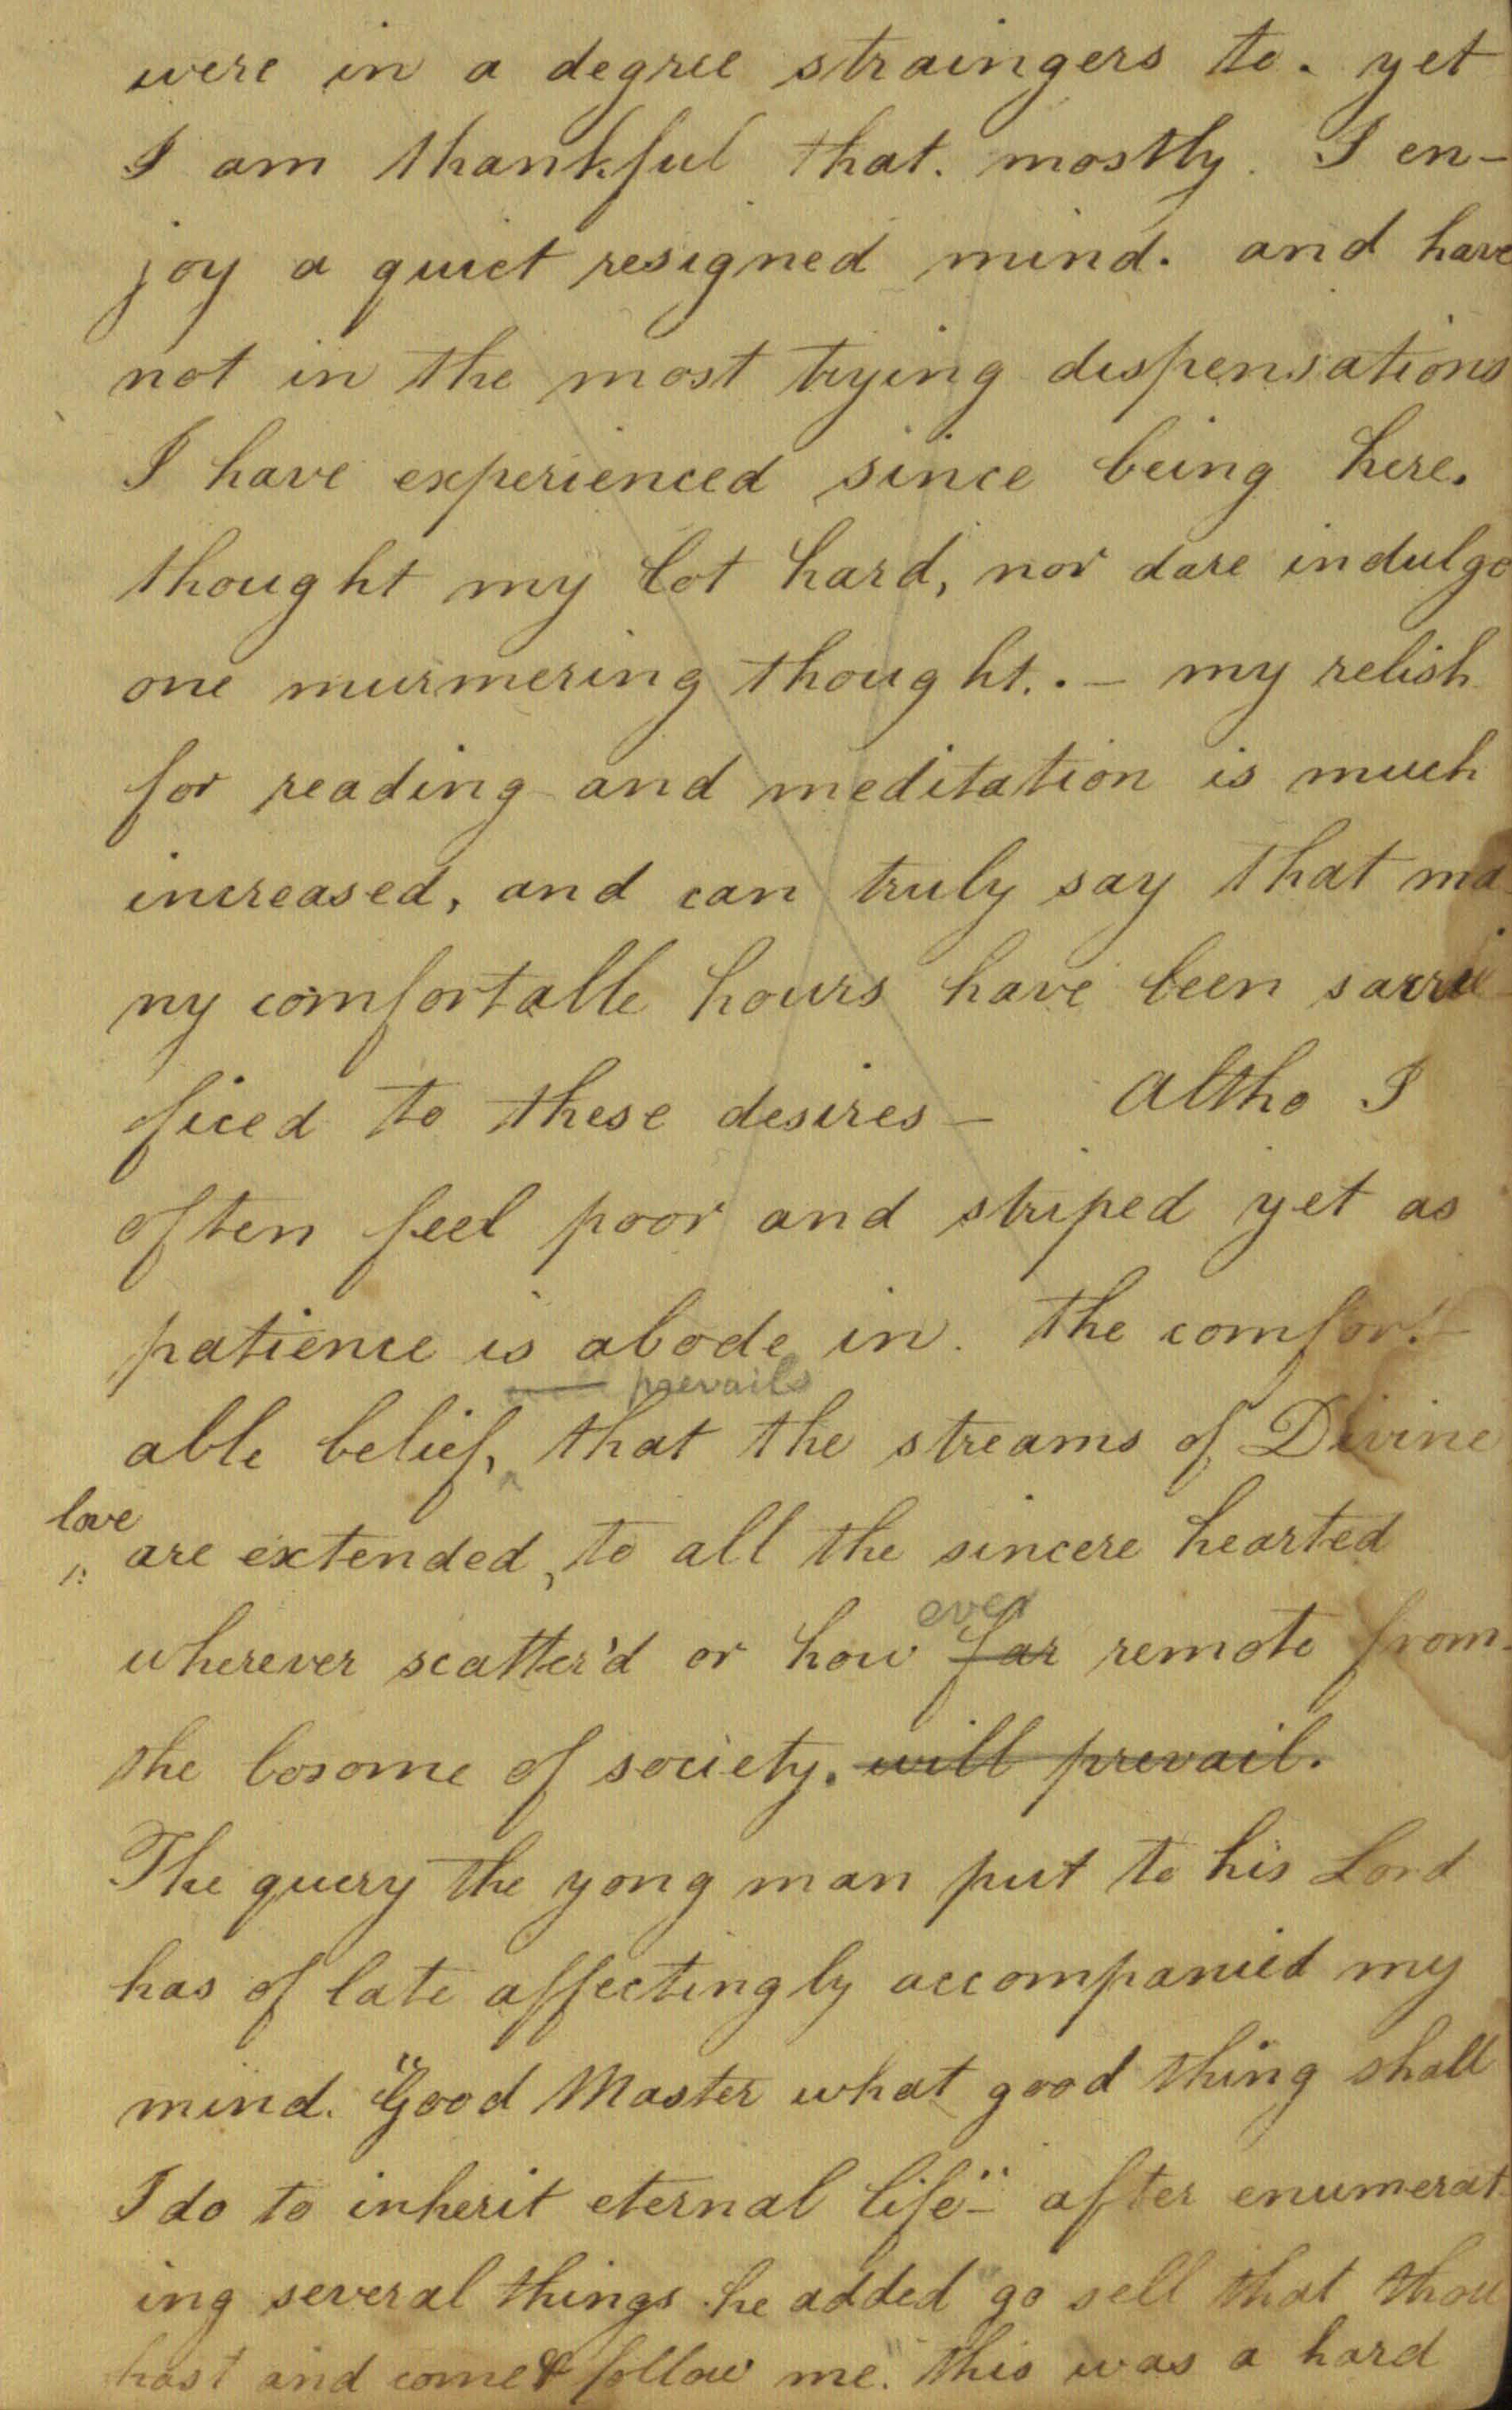 were in a degree straingers to. yet
I am thankful that. mostly. I en-
joy a quiet resigned mind. and have
not in the most trying dispensations
I have experienced since being here.
thought my lot hard, nor dare indulge
one murmering thought. . - my relish
for reading and meditation is much
increased, and can truly say that ma
ny comfortable hours have been sacri-
ficed to these desires - Altho I
often feel poor and striped yet as
patience is abode in. the comfort-
prevails
able belief, that the streams of Divine
love
are extended, to all the sincere hearted
ever
wherever scatter'd or how far remote from
the bosome of society. will prevail.
The query the yong man put to his Lord
has of late affectingly accompanied my
mind. "Good Master what good thing shall
I do to inherit eternal life" - after enumerat
ing several things he added "go sell that thou
hast and come & follow me." this was a hard